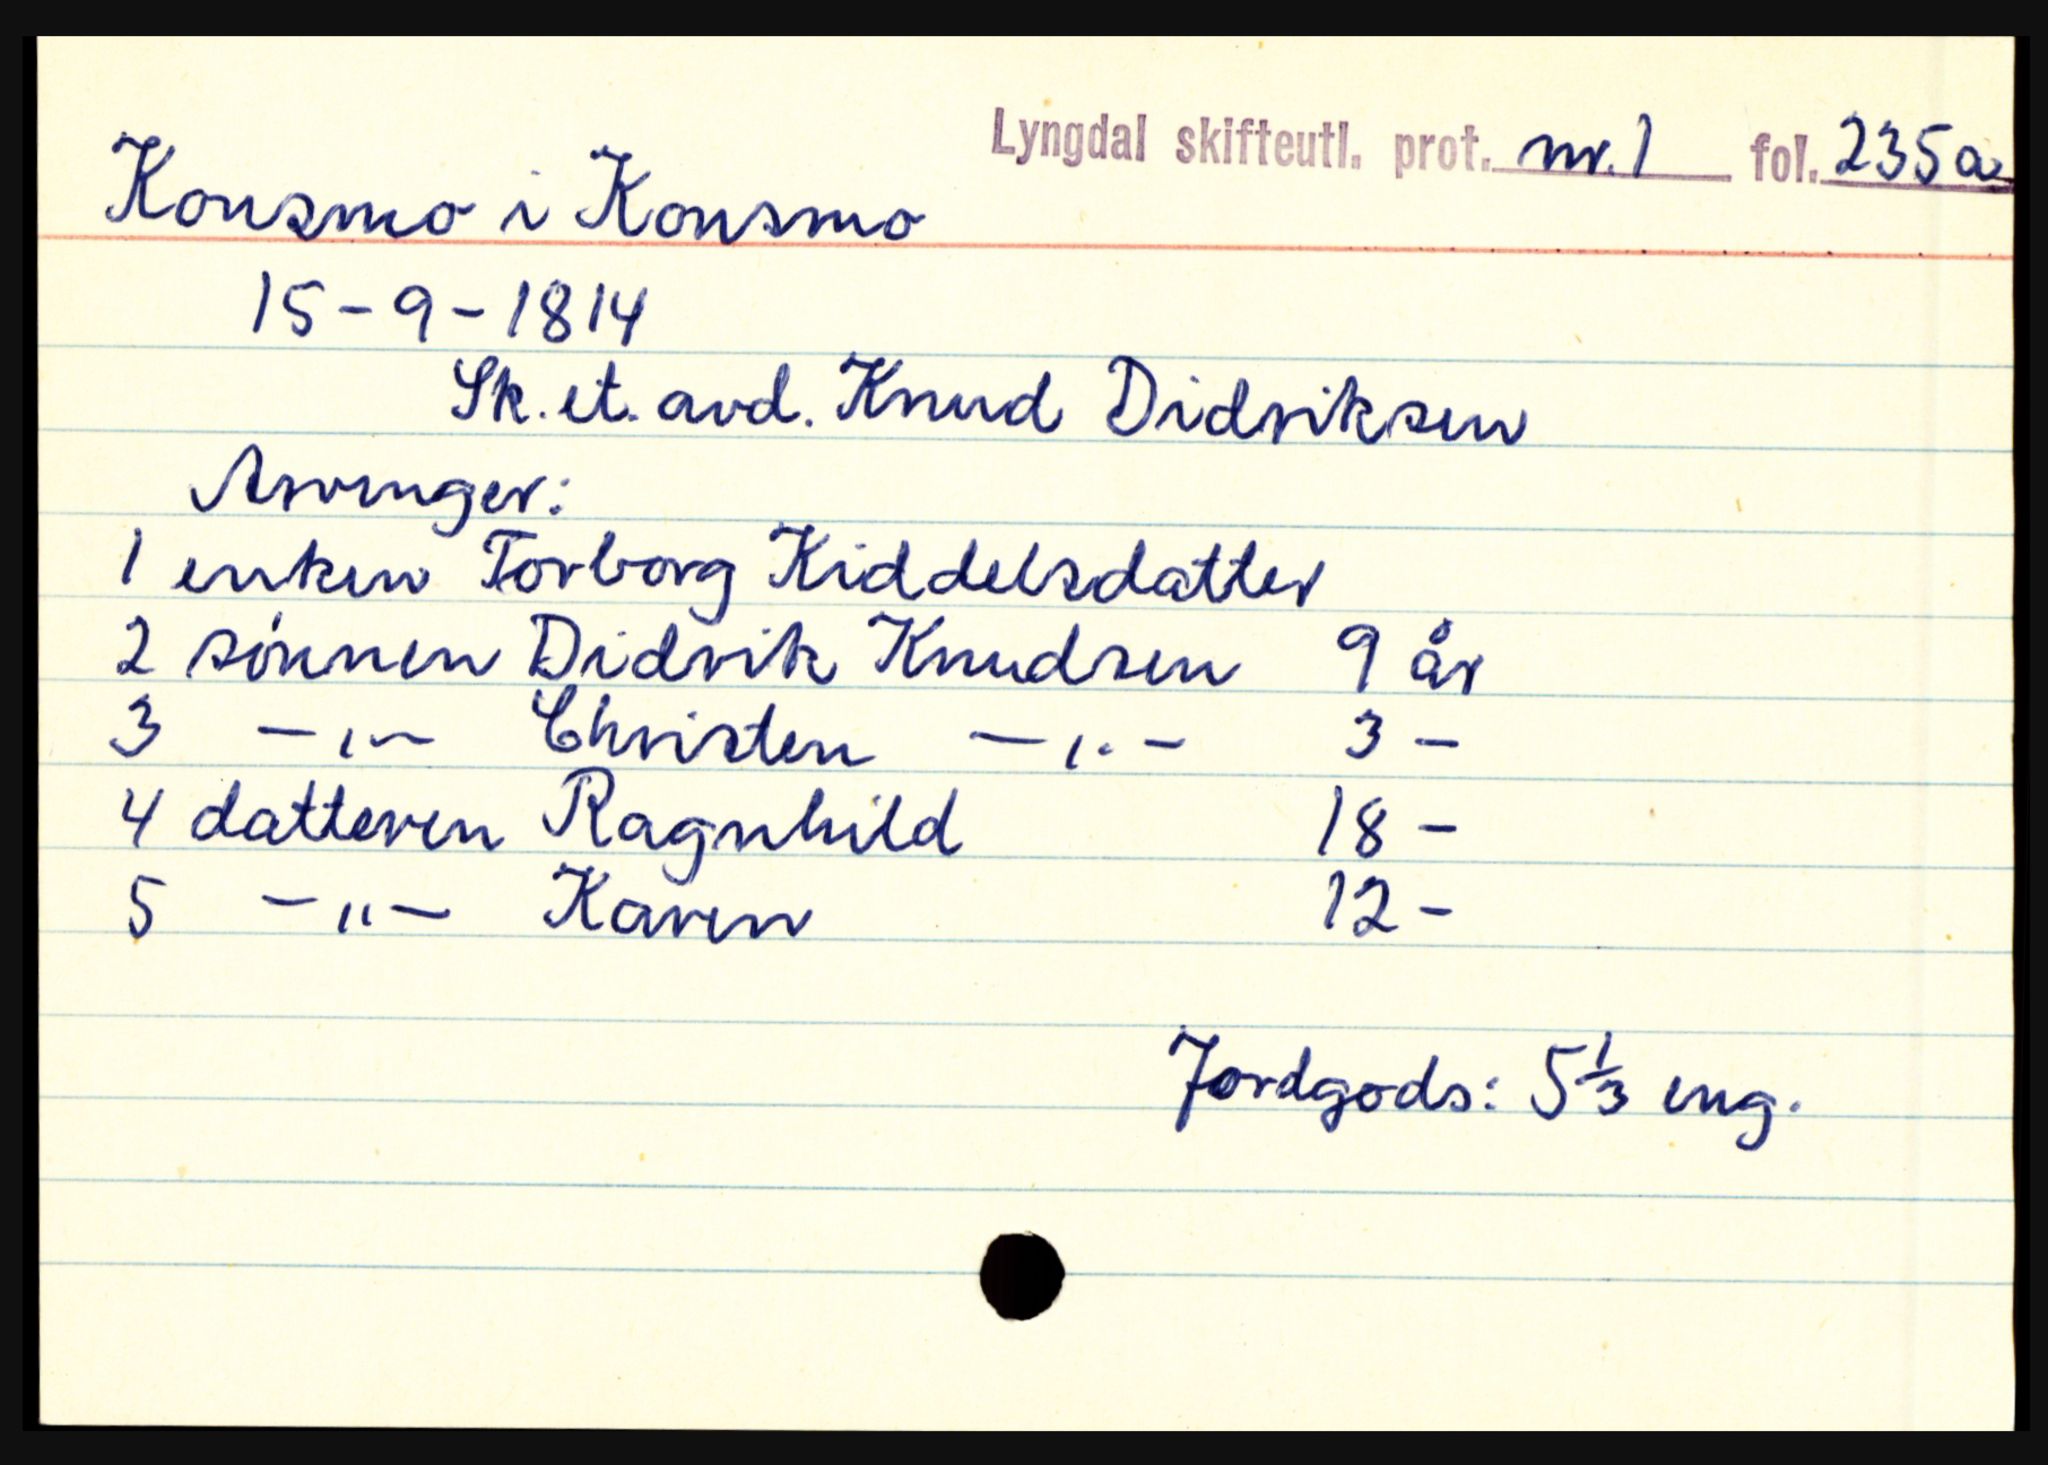 Lyngdal skifteutl. prot. nr. 1 fol. 235a
Konsmo i Konsmo
15-9-1814
Sk. et. avd. Knud Didriksen
Arvinger:
1 enken Torborg Kiddelsdatter
2 sønnen Didrik Knudsen 9 år
3 -"- Christen -"- 3 -
4 datteren Ragnhild 18 -
5 -"- Karen 12 -
Jordgods: 5 1/3 eng.